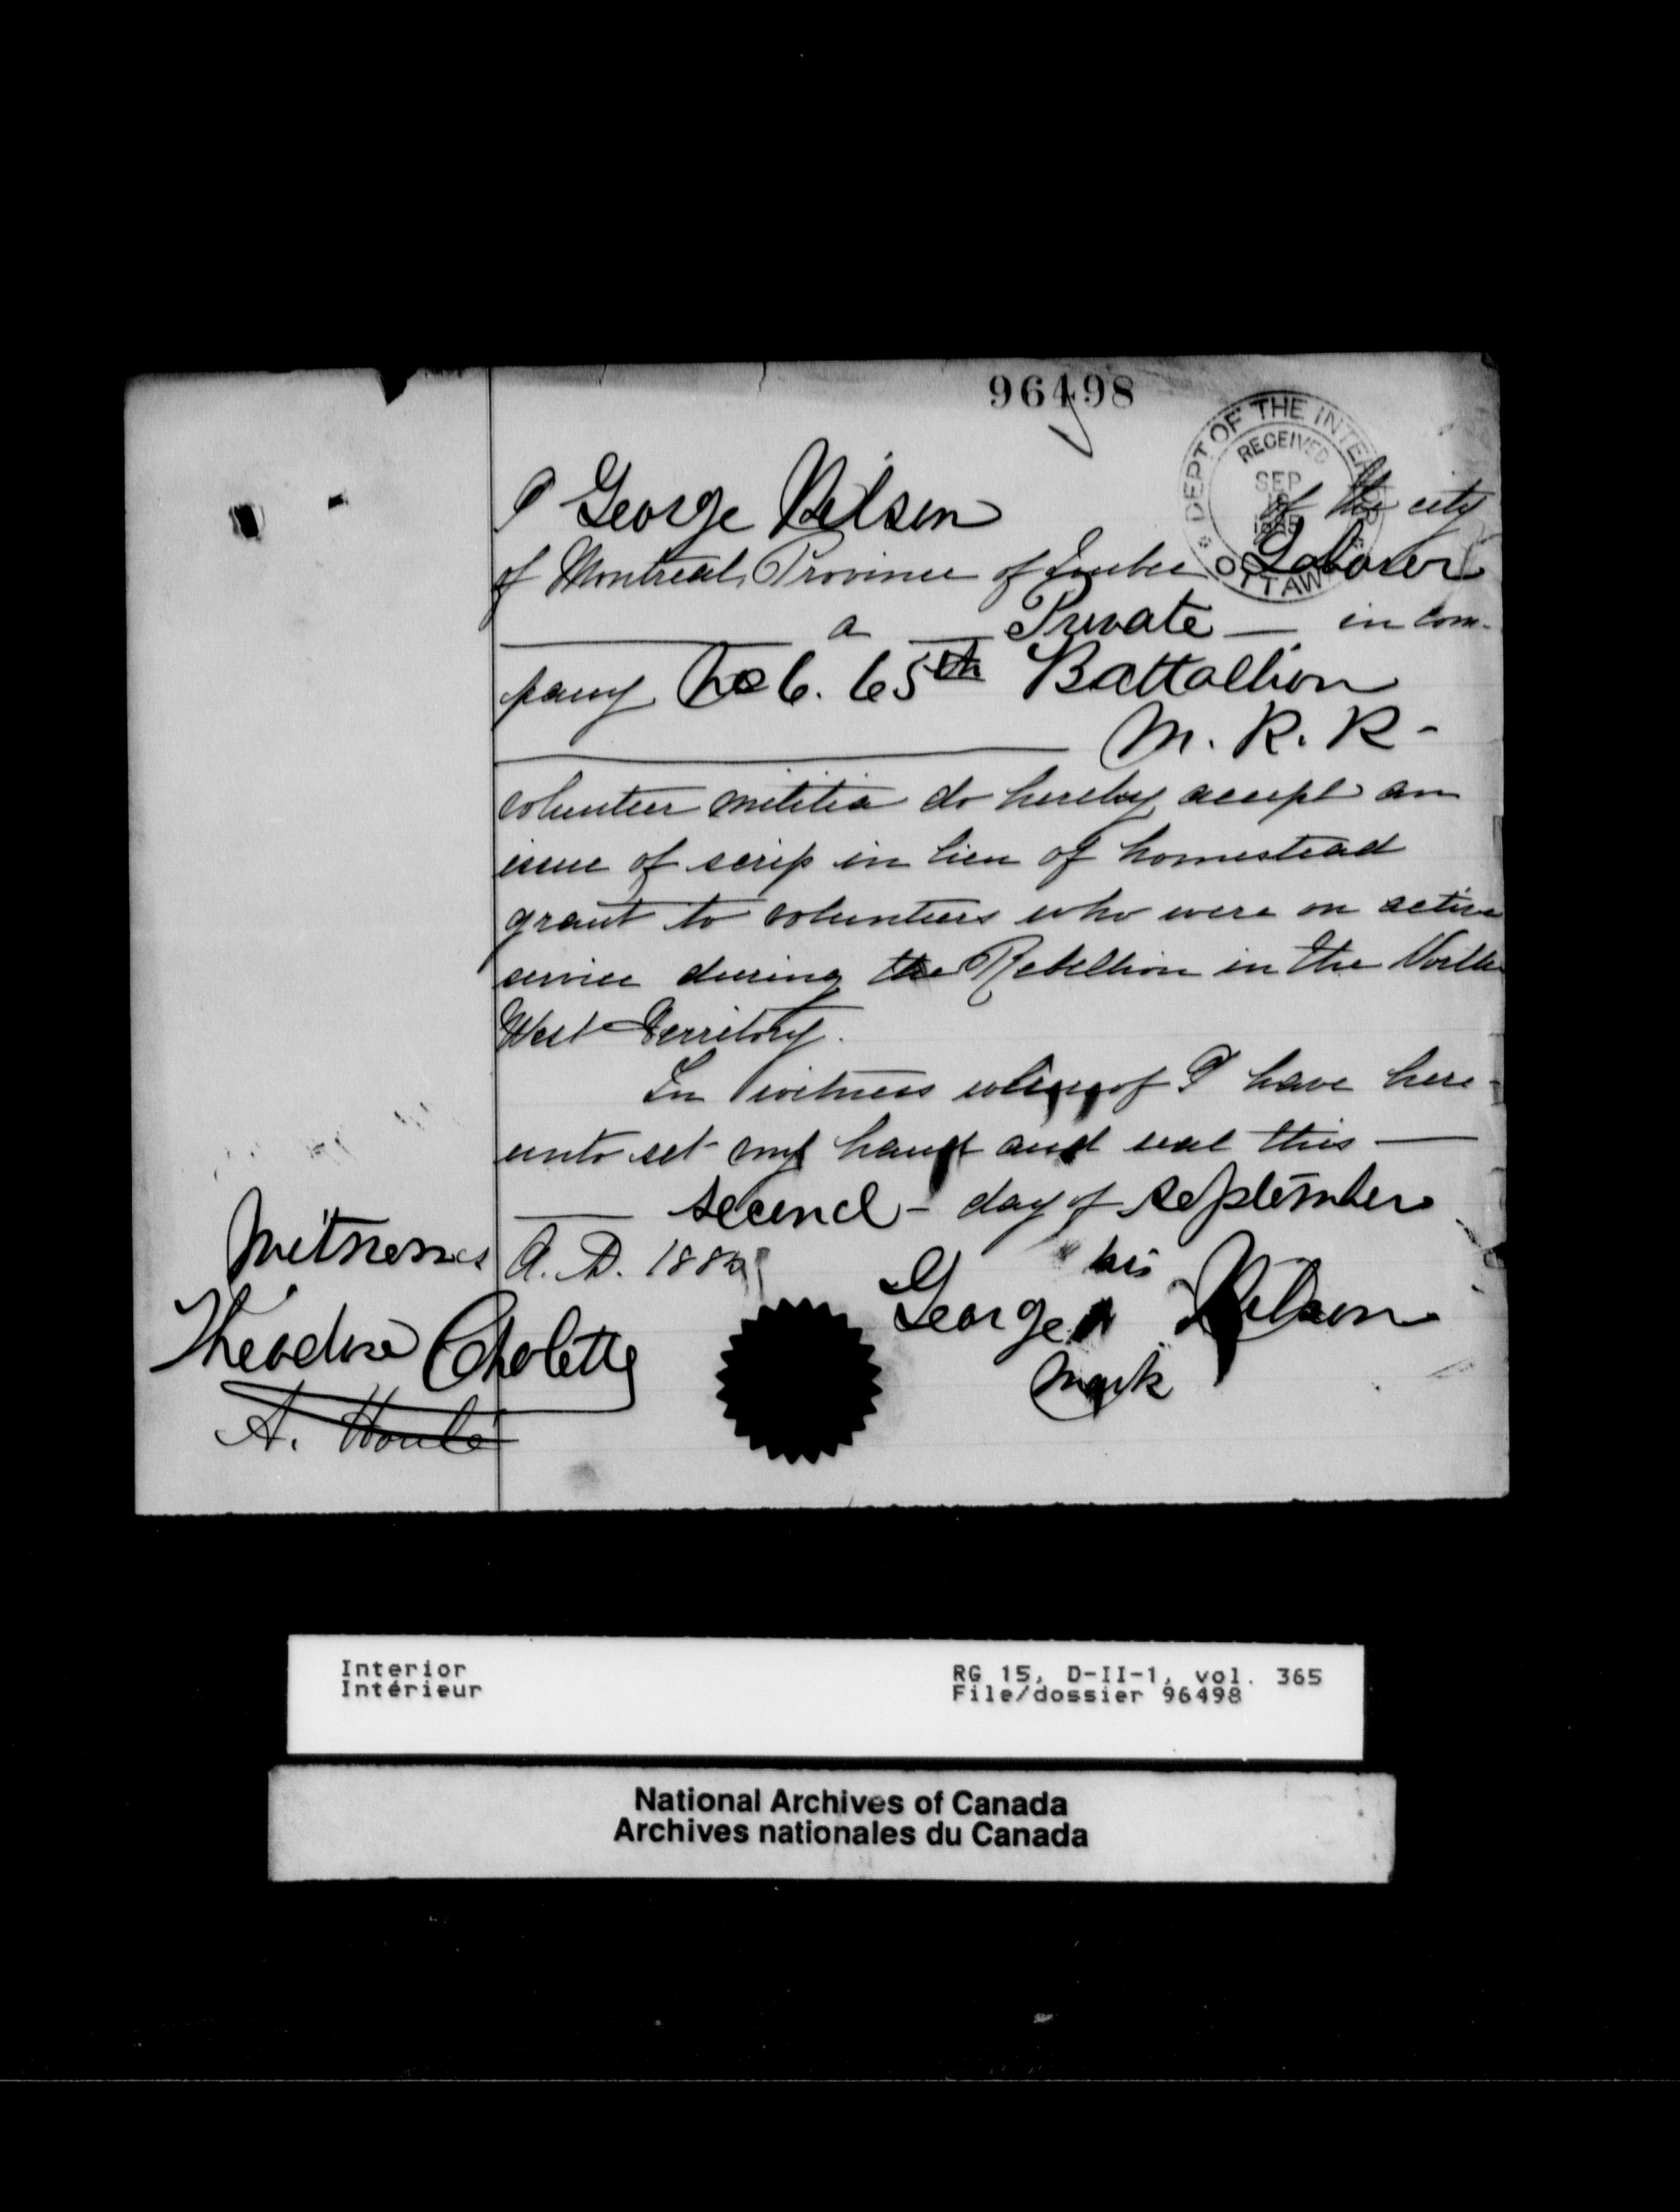 96498
DEPT OF THE INTERIOR
RECEIVED
SEP
1885
OTTAWA
I George Nelson of the city
of Montreal, Province of Quebec Laborer
a Private in com-
pany No 6. 65th Battallion
M. R. R-
volunteer militia do hereby accept an
issue of scrip in lieu of homestead
grant to volunteers who were on active
service during the Rebellion in the North
West Territory.
In witness whereof I have here-
unto set my hand and seal this
second - day of September
A. D. 1885
his
George Nelson
mark
Witnesses
Théodore Cholette
A. Houle
Interior
Intérieur
RG 15, D-II-1, vol. 365
File/dossier 96498
National Archives of Canada
Archives nationales du Canada